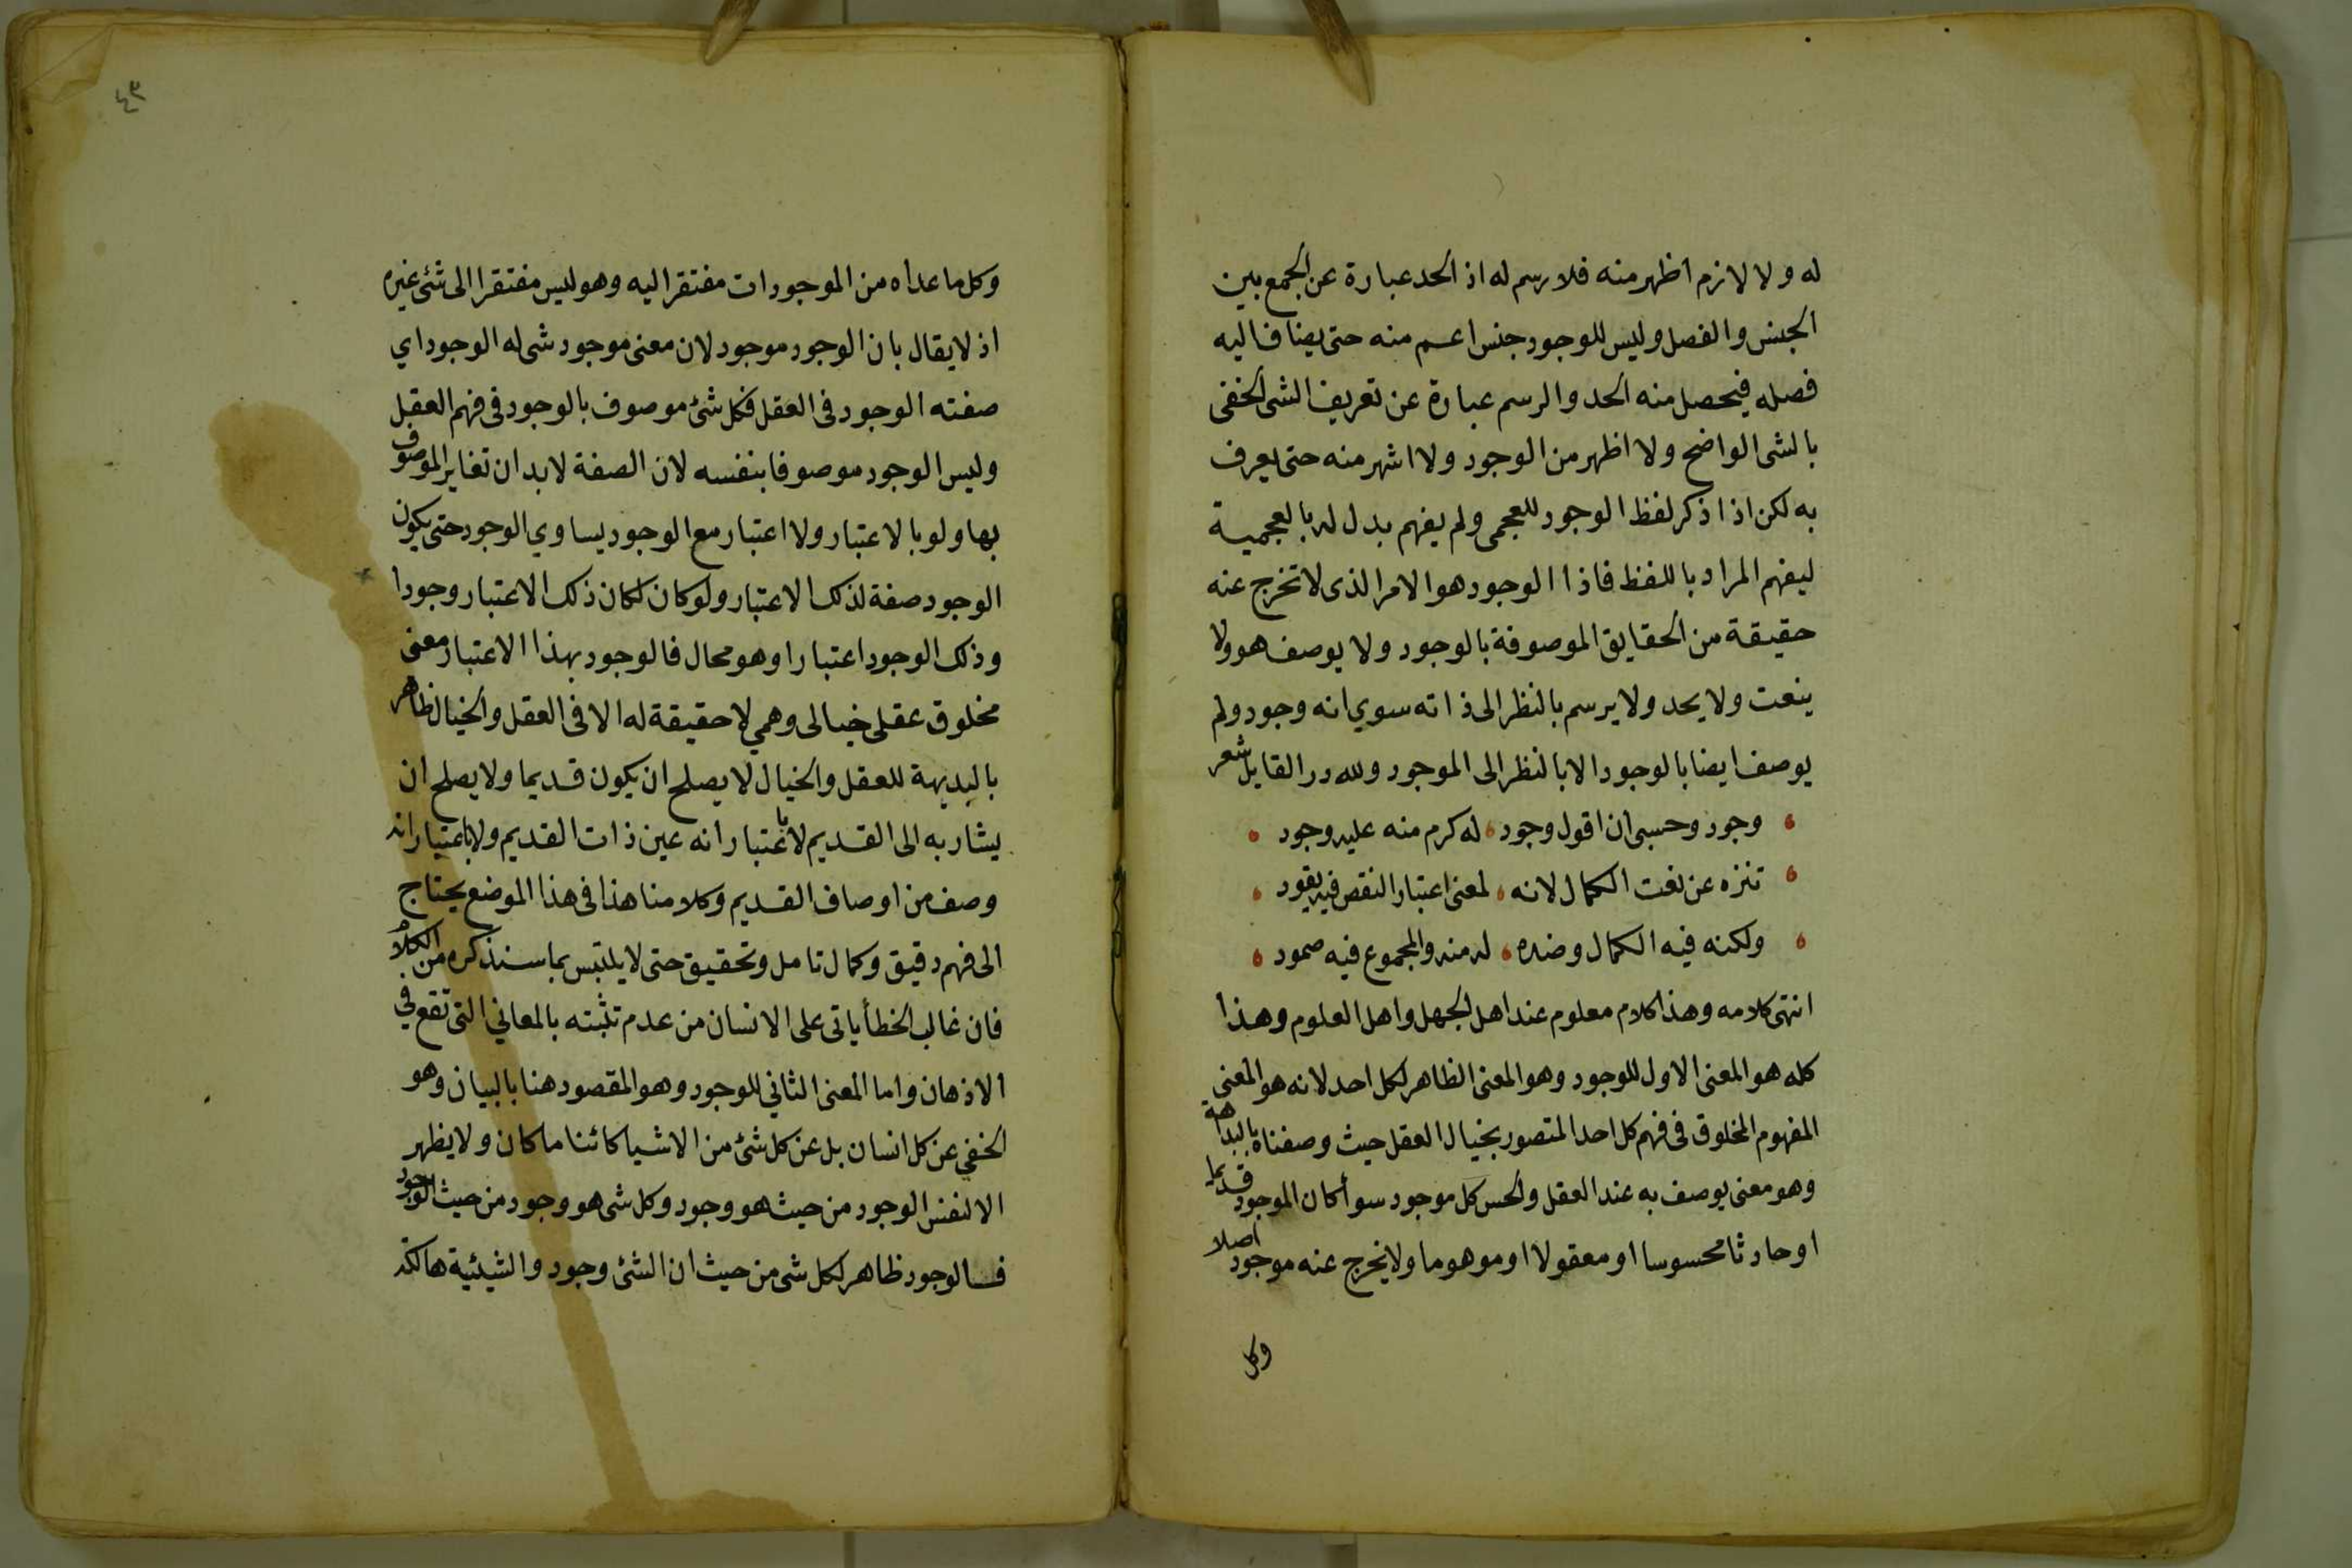 له ولا لازم اظهر منه فلا رسم له اذ الحد عبارة عن الجمع بين
الجنس والفصل وليس للوجود جنس اعم منه حتى يضاف اليه
فصله فيحصل منه الحد والرسم عبارة عن تعريف الشى الخفى
بالشى الواضح ولا اظهر من الوجود ولا اشهر منه حتى يعرف
به لكن اذا ذكر لفظ الوجود للعجمى ولم يفهم بدل له بالعجمية
ليفهم المراد باللفظ فاذا الوجود هو الامر الذى لا تخرج عنه
حقيقة من الحقايق الموصوفة بالوجود ولا يوصف هو ولا
ينعت ولا يحد ولا يرسم بالنظر الى ذاته سوي انه وجود ولم
يوصف ايضا بالوجود الا بالنظر الى الموجود ولله در القايل شعر
وجود وحسبى ان اقول وجود له كرم منه عليه وجود
تنزه عن نعت الكمال لانه لمعنى اعتبار النقص فيه يقود
ولكنه فيه الكمال وضده له منه والمجموع فيه صمود
انتهى كلامه وهذا كلام معلوم عند اهل الجهل واهل العلوم وهذا
كله هو المعنى الاول للوجود وهو المعنى الظاهر لكل احد لانه هو المعنى
المفهوم المخلوق فى فهم كل احد المتصور بخيال العقل حيث وصفناه بالبداهة
وهو معنى يوصف به عند العقل والحس كل موجود سوأ كان الموجود قديما
او حادثا محسوسا او معقولا او موهوما ولا يخرج عنه موجود اصلا
وكل
٤٣
وكل ما عداه من الموجودات مفتقرا اليه وهو ليس مفتقرا الى شئ غيره
اذ لا يقال بان الوجود موجود لان معنى موجود شى له الوجود اي
صفته الوجود فى العقل فكل شئ موصوف بالوجود فى فهم العقل
وليس الوجود موصوفا بنفسه لان الصفة لا بد ان تغاير الموصوف
بها ولو بالاعتبار ولا اعتبار مع الوجود يساوي الوجود حتى يكون
الوجود صفة لذلك الاعتبار ولو كان لكان ذلك الاعتبار وجودا
وذلك الوجود اعتبارا وهو محال فالوجود بهذا الاعتبار معنى
مخلوق عقلى خيالى وهمي لا حقيقة له الا فى العقل والخيال ظاهر
بالبديهة للعقل والخيال لا يصلح ان يكون قديما ولا يصلح ان
يشار به الى القديم لا باعتبار انه عين ذات القديم ولا باعتبار انه
وصف من اوصاف القديم وكلامنا هذا فى هذا الموضع يحتاج
الى فهم دقيق وكمال تامل وتحقيق حتى لا يلتبس بما سنذكره من الكلام
فان غالب الخطأ ياتى على الانسان من عدم تثبته بالمعاني التى تقع في
الاذهان واما المعنى الثاني للوجود وهو المقصود هنا بالبيان وهو
الخفي عن كل انسان بل عن كل شئ من الاشيا كائنا ما كان ولا يظهر
الا لنفس الوجود من حيث هو وجود وكل شى هو وجود من حيث الوجود
فالوجود ظاهر لكل شى من حيث ان الشئ وجود والشيئية هالكة